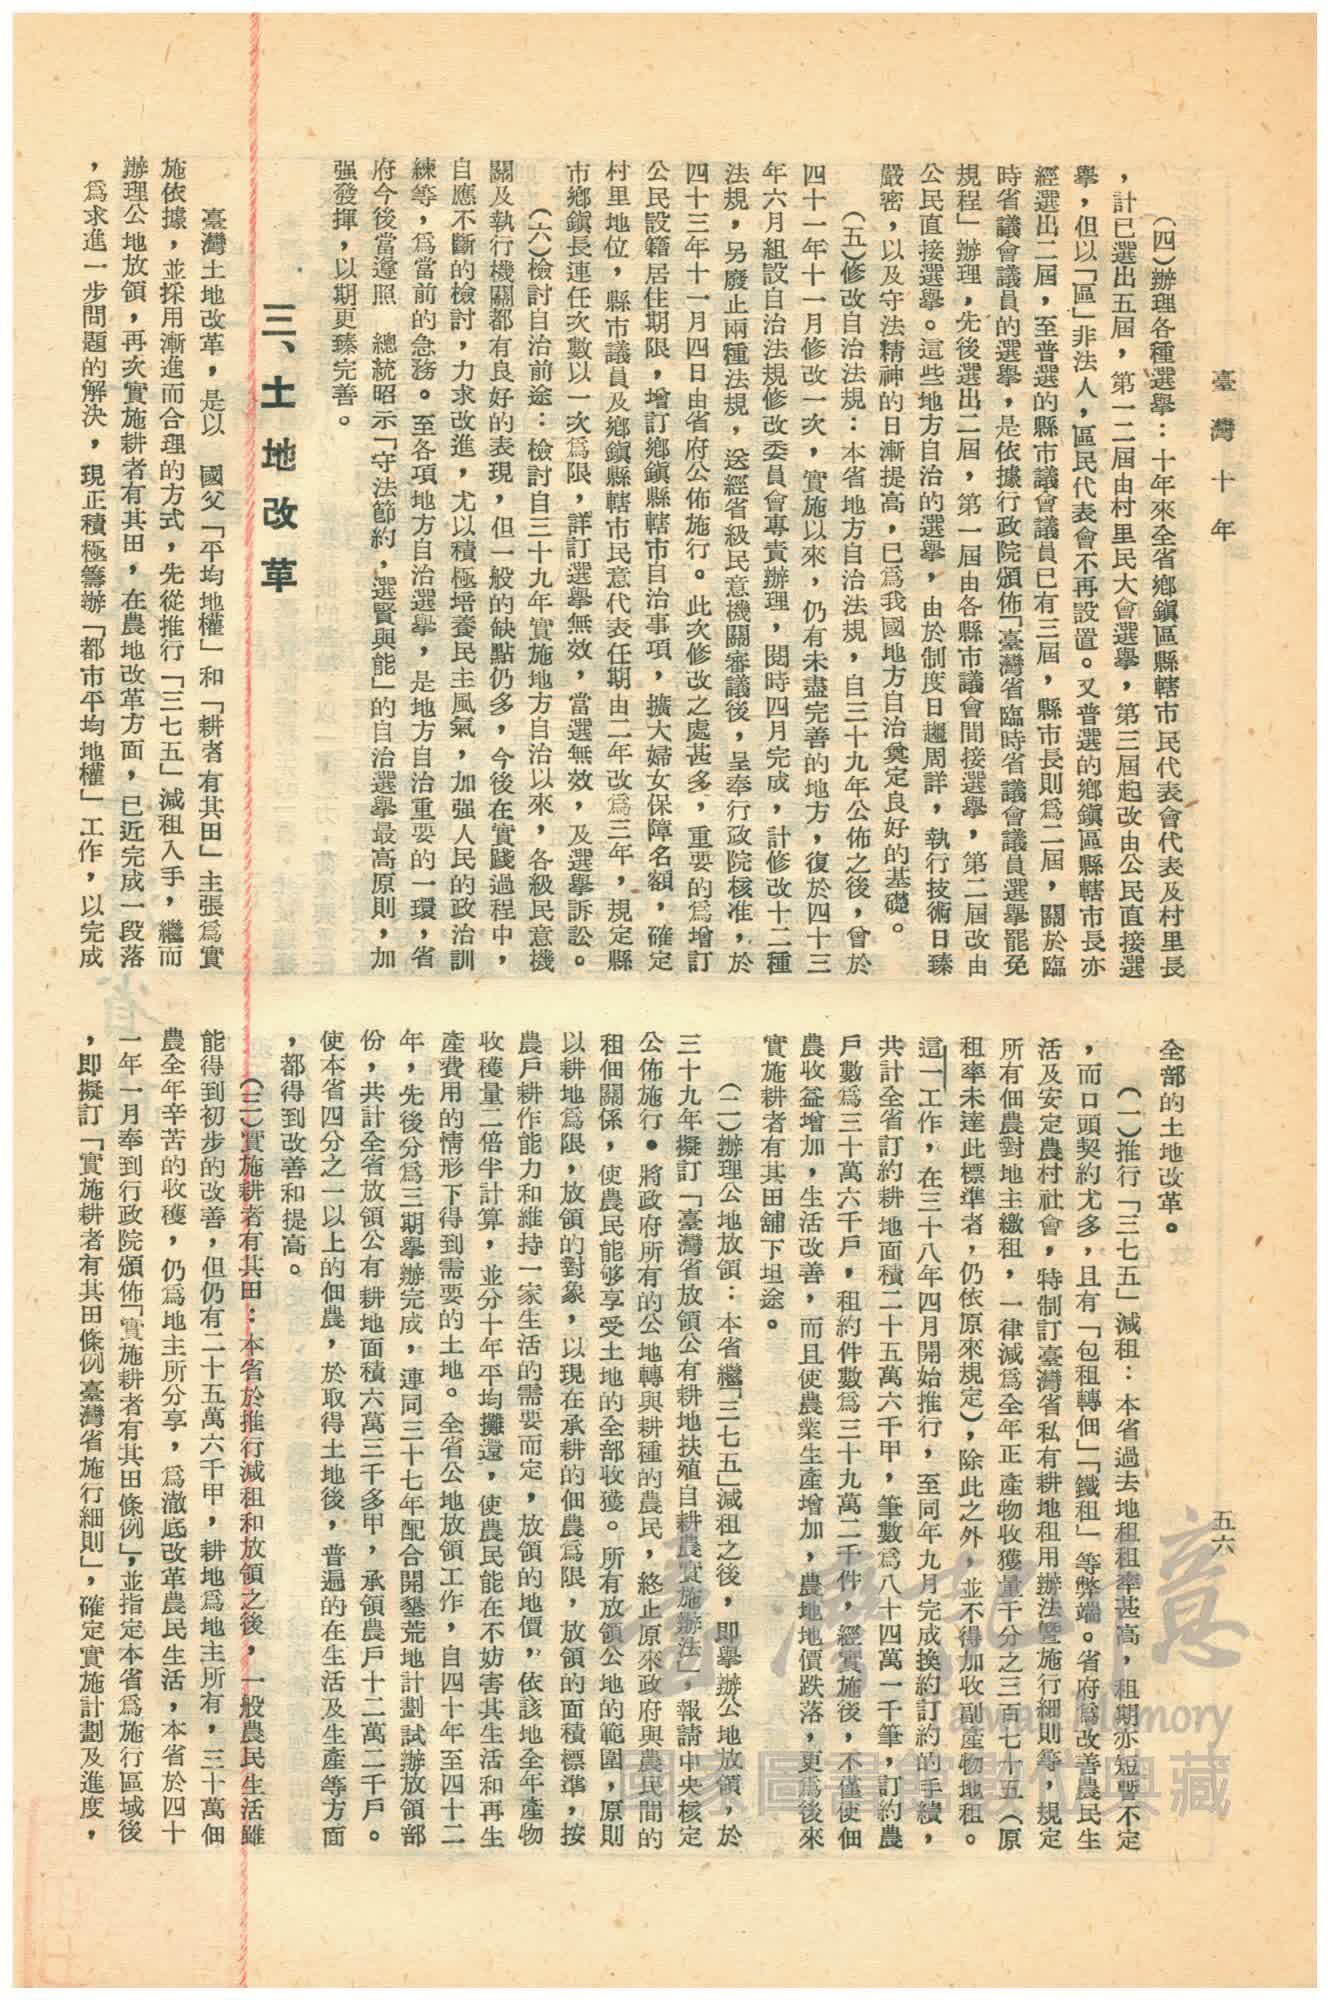 臺灣十年
五六
(四)辦理各種選舉：十年來全省鄉鎭區縣轄市民代表會代表及村里長
，計已選出五屆，第一二屆由村里民大會選舉，第三屆起改由公民直接選
舉，但以「區」非法人，區民代表會不再設置。又普選的鄉鎭區縣轄市長亦
經選出二屆，至普選的縣市議會議員已有三屆，縣市長則爲二屆，關於臨
時省議會議員的選舉，是依據行政院頒佈「臺灣省臨時省議會議員選舉罷免
規程」辦理，先後選出二屆，第一屆由各縣市議會間接選舉，第二屆改由
公民直接選舉。這些地方自治的選舉，由於制度日趨周詳，執行技術日臻
嚴密，以及守法精神的日漸提高，已爲我國地方自治奠定良好的基礎。
(五)修改自治法規：本省地方自治法規，自三十九年公佈之後，曾於
四十一年十一月修改一次，實施以來，仍有未盡完善的地方，復於四十三
年六月組設自治法規修改委員會專責辦理，閱時四月完成，計修改十二種
法規，另廢止兩種法規，送經省級民意機關審議後，呈奉行政院核准，於
四十三年十一月四日由省府公佈施行。此次修改之處甚多，重要的爲增訂
公民設籍居住期限，增訂鄉鎭縣轄市自治事項，擴大婦女保障名額，確定
村里地位，縣市議員及鄉鎭縣轄市民意代表任期由二年改爲三年，規定縣
市鄉鎭長連任次數以一次爲限，詳訂選舉無效，當選無效，及選舉訴訟。
(六)檢討自治前途：檢討自三十九年實施地方自治以來，各級民意機
關及執行機關都有良好的表現，但一般的缺點仍多，今後在實踐過程中，
自應不斷的檢討，力求改進，尤以積極培養民主風氣，加强人民的政治訓
練等，爲當前的急務。至各項地方自治選舉，是地方自治重要的一環，省
府今後當遵照　總統昭示「守法節約，選賢與能」的自治選舉最高原則，加
强發揮，以期更臻完善。
三、土地改革
臺灣土地改革，是以　國父「平均地權」和「耕者有其田」主張爲實
施依據，並採用漸進而合理的方式，先從推行「三七五」減租入手，繼而
辦理公地放領，再次實施耕者有其田，在農地改革方面，已近完成一段落
，爲求進一步問題的解決，現正積極籌辦「都市平均地權」工作，以完成
全部的土地改革。
(一)推行「三七五」減租：本省過去地租租率甚高，租期亦短暫不定
，而口頭契約尤多，且有「包租轉佃」「鐵租」等弊端。省府爲改善農民生
活及安定農村社會，特制訂臺灣省私有耕地租用辦法暨施行細則等，規定
所有佃農對地主繳租，一律減爲全年正產物收獲量千分之三百七十五(原
租率未達此標準者，仍依原來規定)，除此之外，並不得加收副產物地租。
這一工作，在三十八年四月開始推行，至同年九月完成換約訂約的手續，
共計全省訂約耕地面積二十五萬六千甲，筆數爲八十四萬一千筆，訂約農
戶數爲三十萬六千戶，租約件數爲三十九萬二千件，經實施後，不僅使佃
農收益增加，生活改善，而且使農業生產增加，農地地價跌落，更爲後來
實施耕者有其田舖下坦途。
(二)辦理公地放領：本省繼「三七五」減租之後，即舉辦公地放領，於
三十九年擬訂「臺灣省放領公有耕地扶殖自耕農實施辦法」，報請中央核定
公佈施行。將政府所有的公地轉與耕種的農民，終止原來政府與農民間的
租佃關係，使農民能够享受土地的全部收獲。所有放領公地的範圍，原則
以耕地爲限，放領的對象，以現在承耕的佃農爲限，放領的面積標準，按
農戶耕作能力和維持一家生活的需要而定，放領的地價，依該地全年產物
收穫量二倍半計算，並分十年平均攤還，使農民能在不妨害其生活和再生
產費用的情形下得到需要的土地。全省公地放領工作，自四十年至四十二
年，先後分爲三期舉辦完成，連同三十七年配合開墾荒地計劃試辦放領部
份，共計全省放領公有耕地面積六萬三千多甲，承領農戶十二萬二千戶。
使本省四分之一以上的佃農，於取得土地後，普遍的在生活及生產等方面
，都得到改善和提高。
(三)實施耕者有其田：本省於推行減租和放領之後，一般農民生活雖
能得到初步的改善，但仍有二十五萬六千甲，耕地爲地主所有，三十萬佃
農全年辛苦的收穫，仍爲地主所分享，爲澈底改革農民生活，本省於四十
一年一月奉到行政院頒佈「實施耕者有其田條例」，並指定本省爲施行區域後
，即擬訂「實施耕者有其田條例臺灣省施行細則」，確定實施計劃及進度，
臺灣記憶
Taiwan Memory
國家圖書館數位典藏